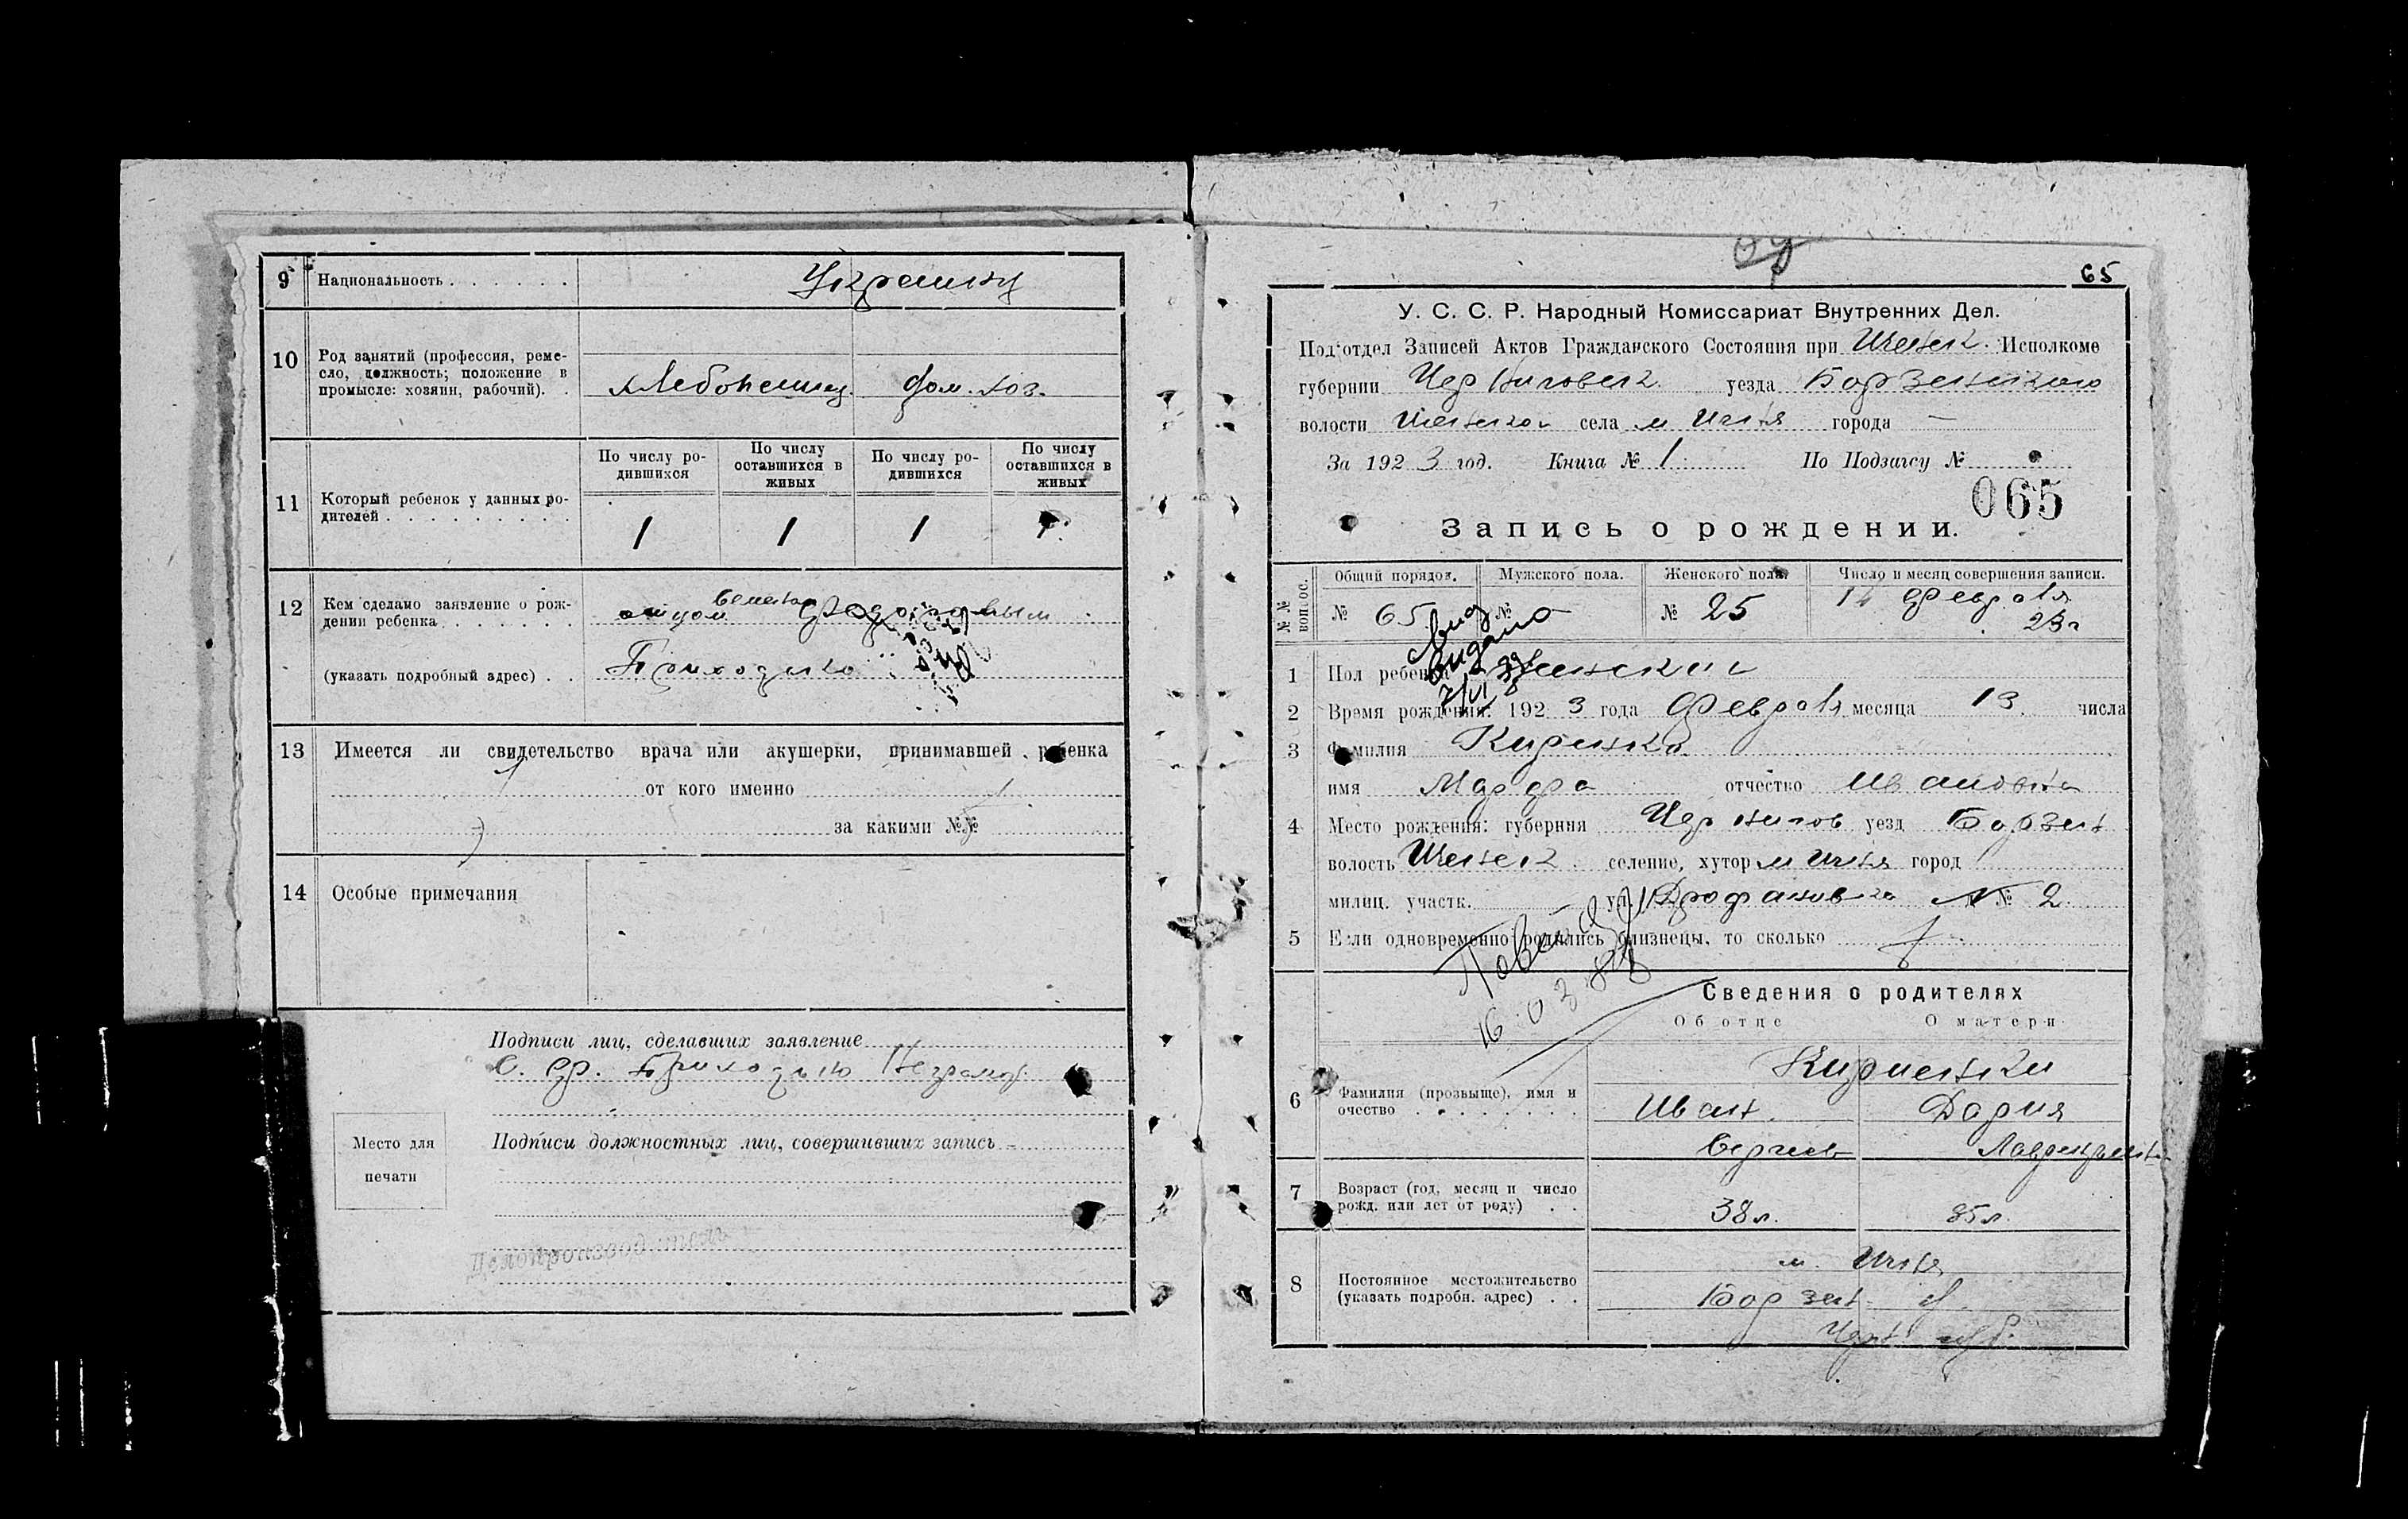 9 Национальность . . . . . . Украинц
10 Род занятий (профессия, реме-
сло, должность; положение в
промысле: хозяин, рабочий). .
хлебопашец. дом. хоз.
11 Который ребенок у данных ро-
дителей . . . . . . . . . .
По числу ро-
дившихся
По числу
оставшихся в
живых
По числу ро-
дившихся
По числу
оставшихся в
живых
1 1 1 1.
12 Кем сделано заявление о рож-
дении ребенка . . . . . .
отцом
(указать подробный адрес) . .
Приходько
13 Имеется ли свидетельство врача или акушерки, принимавшей ребенка
от кого именно
за какими №№
14 Особые примечания
Подписи лиц, сделавших заявление
С. Ф. Приходько Неграмот.
Подписи должностных лиц, совершивших запись
Место для
печати
Делопроизводитель
65
У. С. С. Р. Народный Комиссариат Внутренних Дел.
Под‘отдел Записей Актов Гражданского Состояния при Иченск. Исполкоме
губернии Черниговск. уезда Борзенского
волости Иченской села м Ичня города —
За 1923 год. Книга № 1 По Подзагсу №
065
Запись о рождении.
№ № вопрос.
Общий порядок. Мужского пола. Женского пола. Число и месяц совершения записи.
№ 65. № — № 25 Февраля
23 г
Свид
видано
1 Пол ребенка Женский
2 Время рождения: 1923 года Февраля месяца 13. числа
3 Фамилия Кириенко
имя Марфа отчество Ивановна
4 Место рождения: губерния Чернигов уезд Борзен
волость Иченск. селение, хутор м Ичня город
милиц. участк. — ул. № 2.
5 Если одновременно родились близнецы, то сколько
16.03.
Сведения о родителях
Об отце О матери
6 Фамилия (прозвыще), имя и
очество . . . . . . . .
Кириенки
Иван. Дария
Сергеев Лаврентьев
7 Возраст (год, месяц и число
рожд. или лет от роду) . .
38 л. 35 л.
8 Постоянное местожительство
(указать подробн. адрес) . .
м. Ичня
Борзен. у.
Черн. губ.